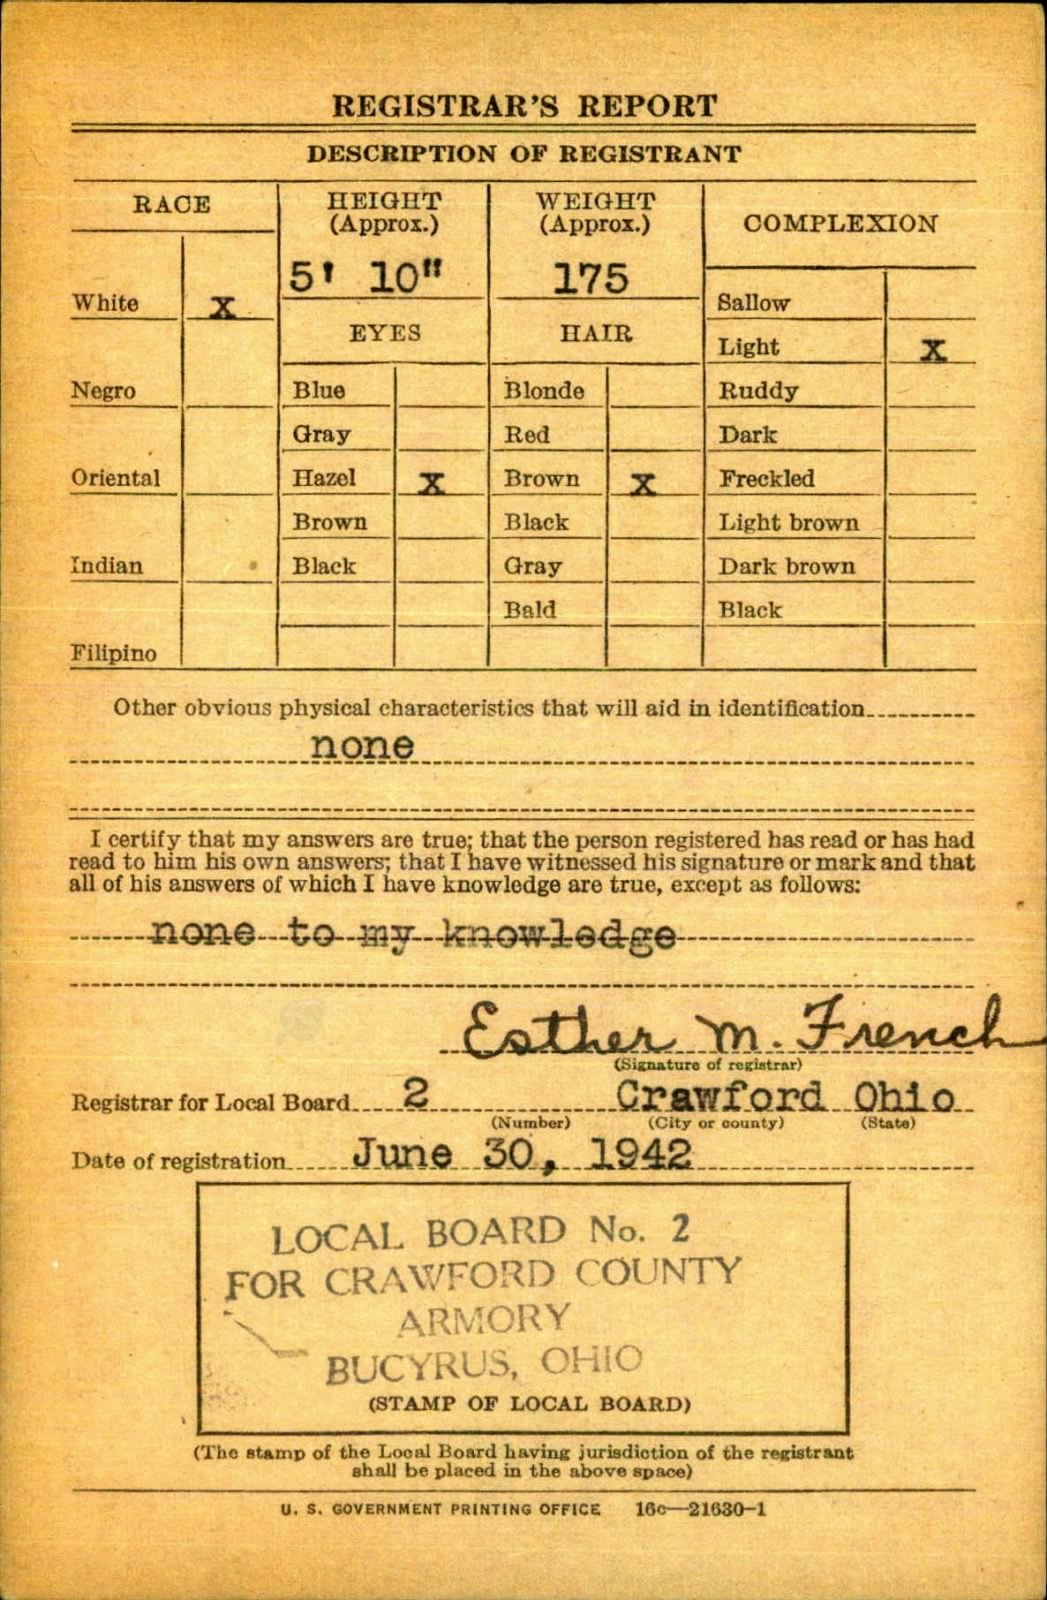 REGISTRAR'S REPORT
DESCRIPTION OF REGISTRANT
RACE
HEIGHT
(Approx.)
WEIGHT
(Approx.)
COMPLEXION
5' 10"
175
White X
Sallow
EYES
HAIR
Light X
Negro
Blue
Blonde
Ruddy
Gray
Red
Dark
Oriental
Hazel X
Brown X
Freckled
Brown
Black
Light brown
Indian
Black
Gray
Dark brown
Bald
Black
Filipino
Other obvious physical characteristics that will aid in identification
none
I certify that my answers are true; that the person registered has read or has had
read to him his own answers; that I have witnessed his signature or mark and that
all of his answers of which I have knowledge are true, except as follows:
none to my knowledge
Esther M. French
(Signature of registrar)
Registrar for Local Board 2 Crawford Ohio
(Number) (City or county) (State)
Date of registration June 30, 1942
LOCAL BOARD No. 2
FOR CRAWFORD COUNTY
ARMORY
BUCYRUS, OHIO
(STAMP OF LOCAL BOARD)
(The stamp of the Local Board having jurisdiction of the registrant
shall be placed in the above space)
U. S. GOVERNMENT PRINTING OFFICE 16c—21630-1